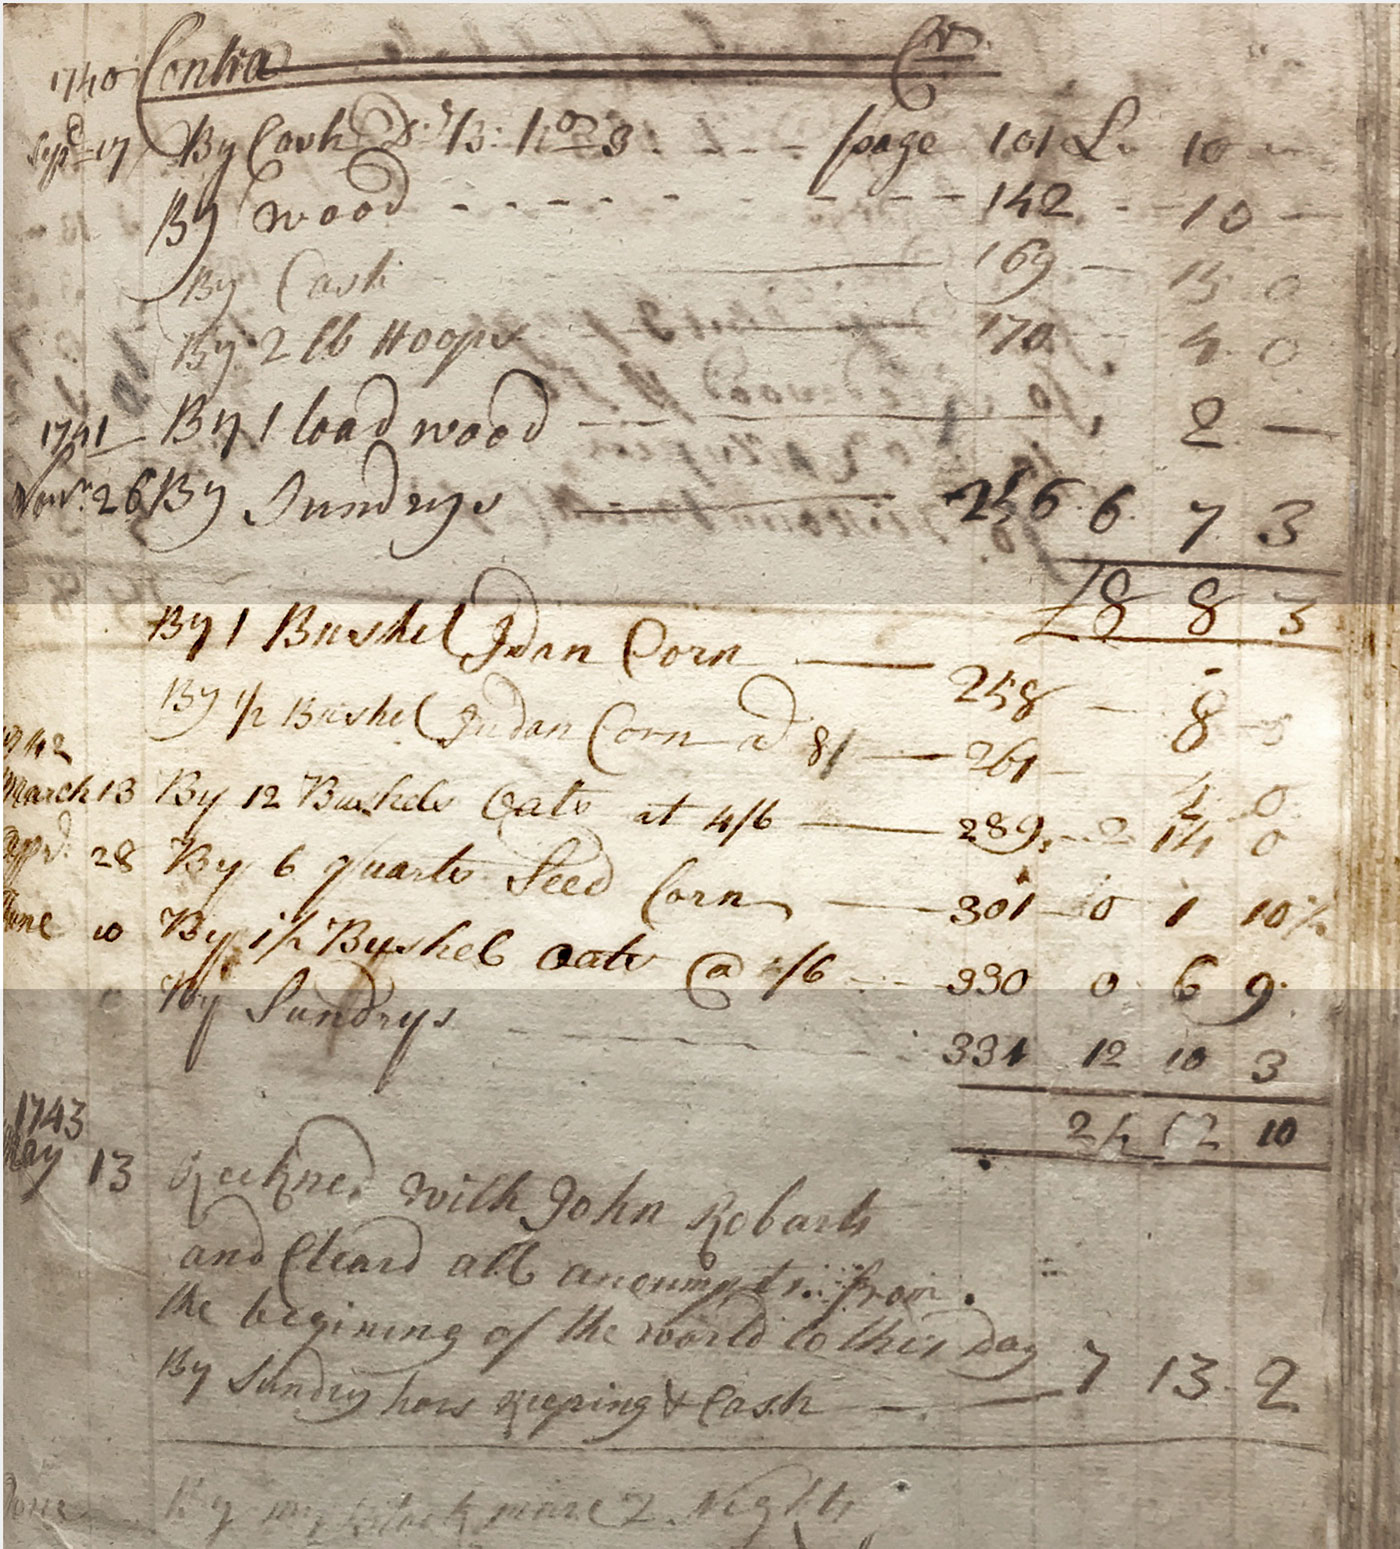 1740 Contra Cr.
Sepd 17 By Cash page 101 L. 10 —
By wood 142 - 10 —
By Cash 169 — 15 0
By 2 lb Hoops 170 - 4 0
1741 By 1 load wood — 2 —
Novr. 26 By Sundrys — 256 6 7 3
£8 8 3
By 1 Bushel Indan Corn — 258 - 8 -
By 1/2 Bushel Indan Corn a 8/ — 261 - 4 0
1742
March 13 By 12 Bushels Oats at 4/6 — 289 - 2 14 0
28 By 6 quarts Seed Corn — 301 0 1 10 1/2
June 10 By 1 1/2 Bushel Oats @ 4/6 - 330 0 6 9
By Sundrys 331 12 10 3
10
1743
May 13 Reckned with John Robarts
and Cleard all from
the begining of the world to this Day
By Sundry hors keeping & Cash — 7 13 2
June By my black mare 2 Nights